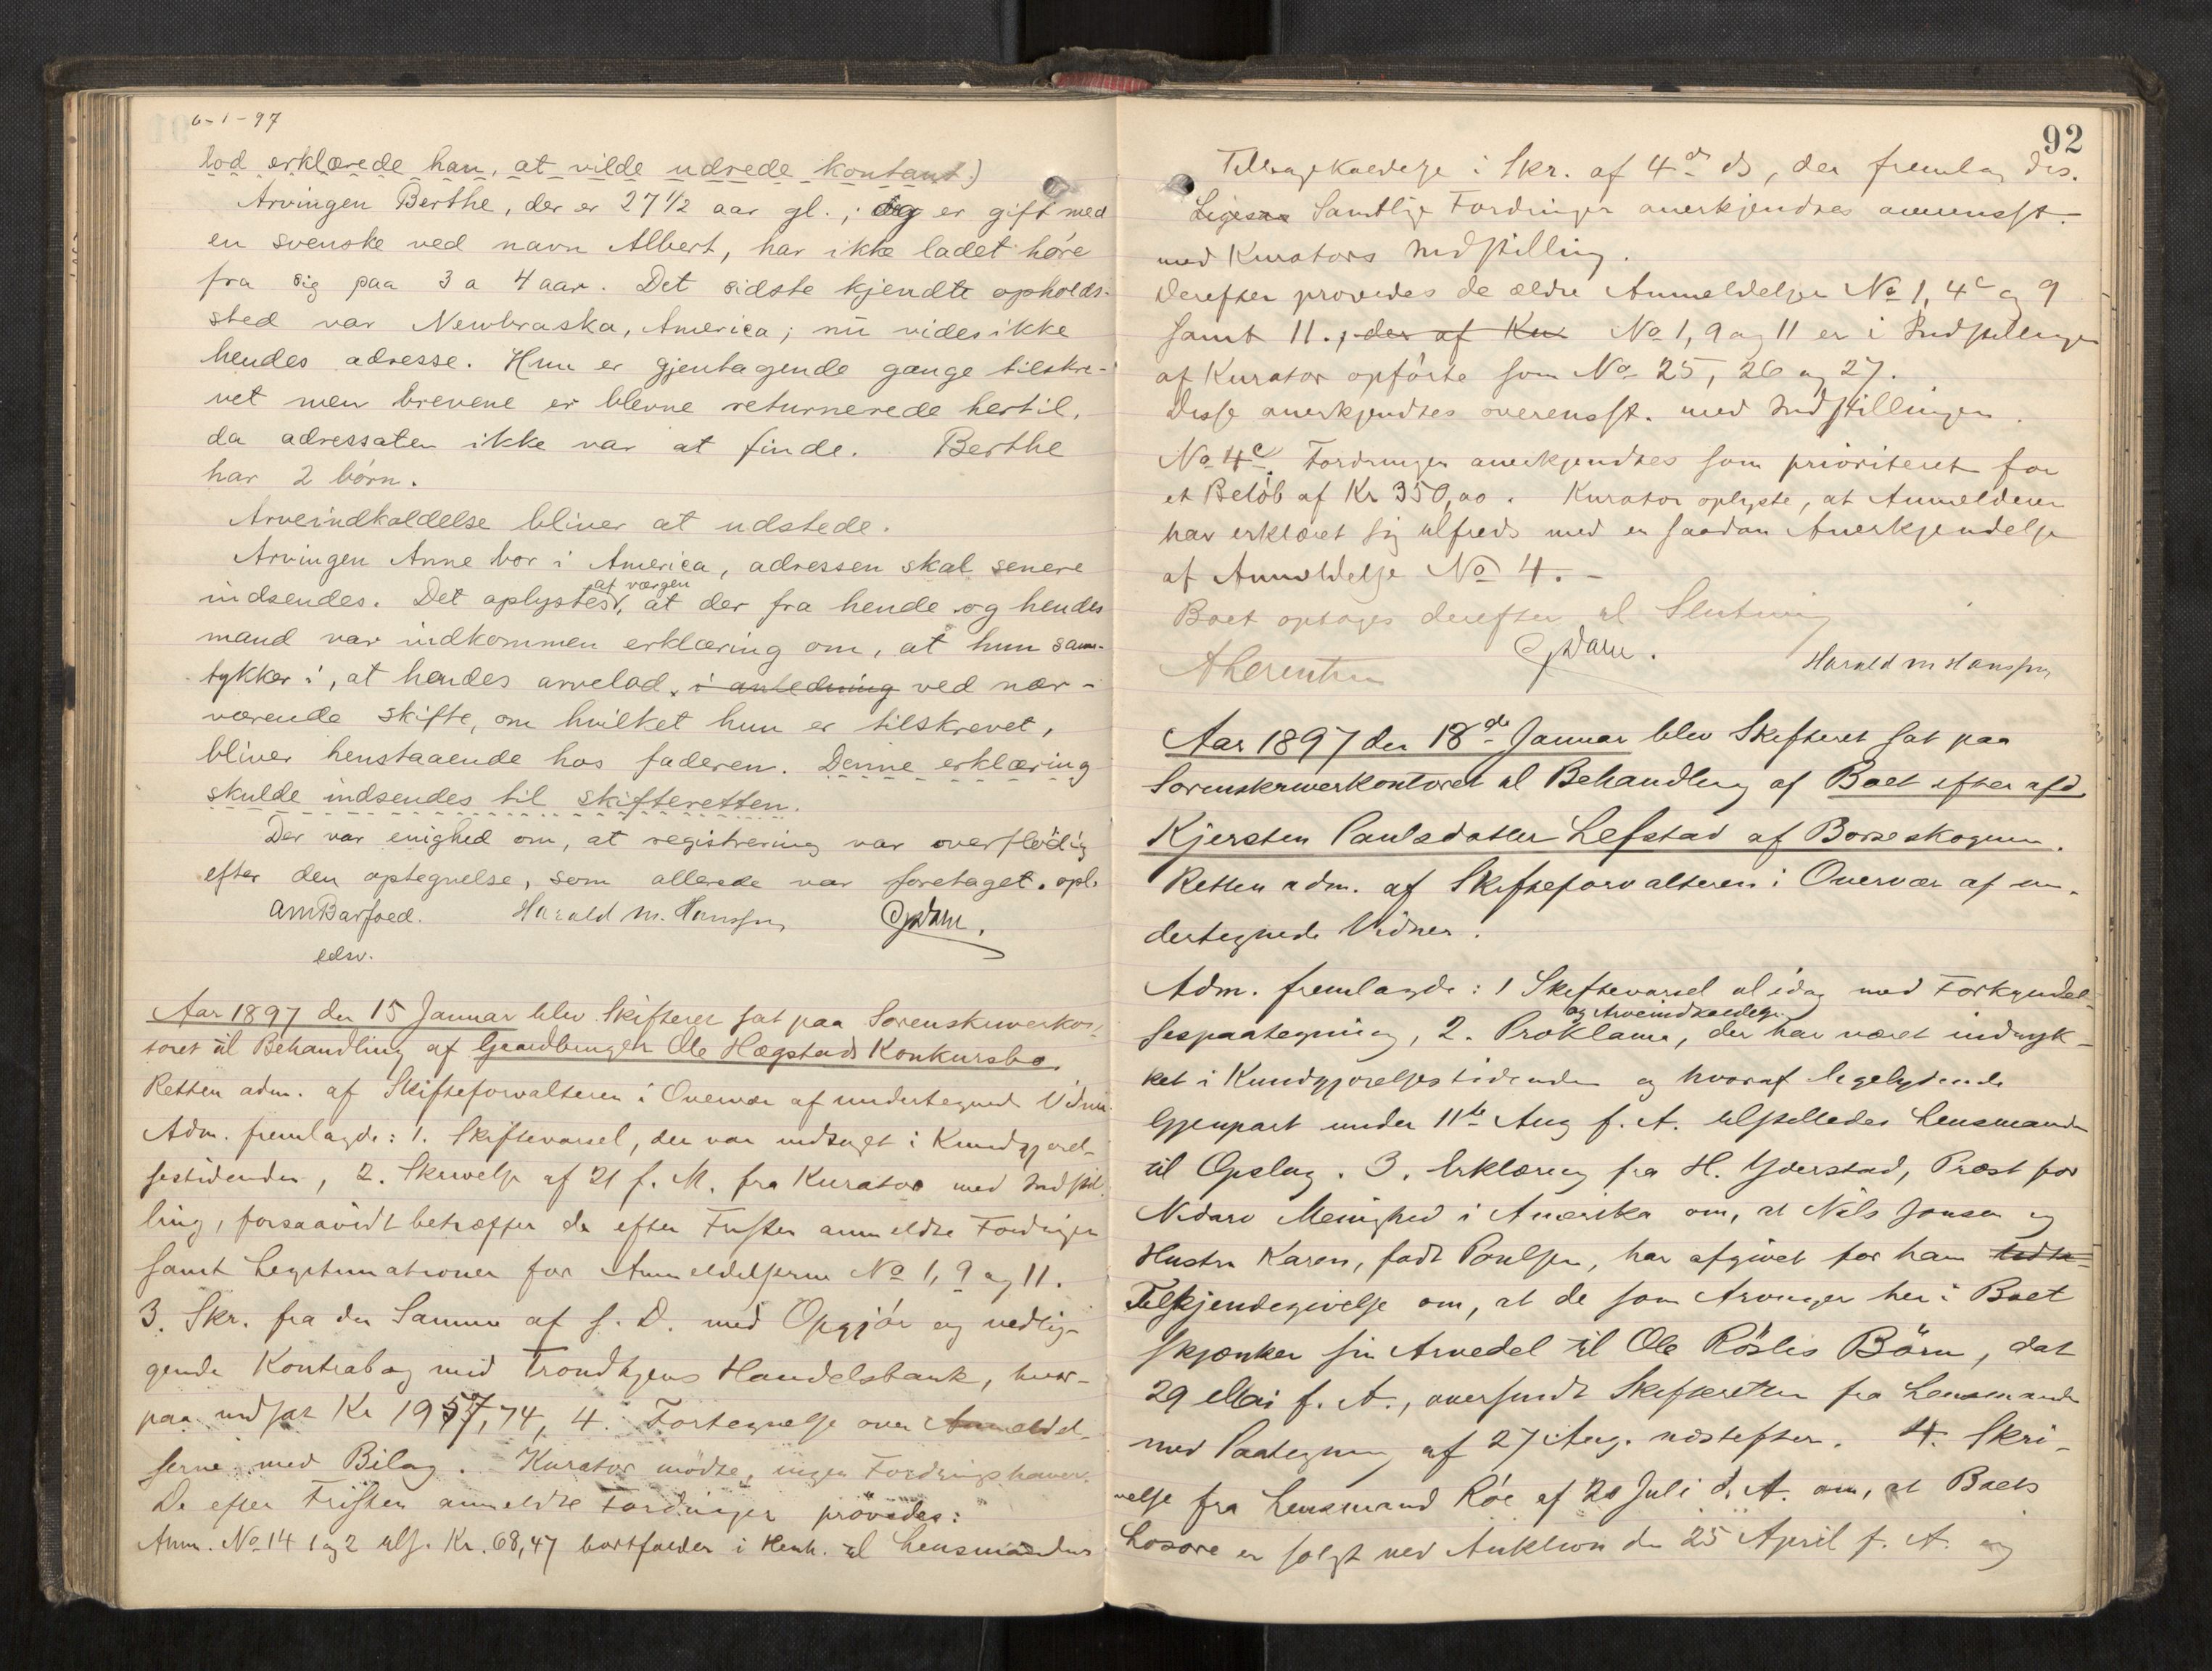 6-1-97
lod erklærede han, at vilde udrede kontant.)
Arvingen Berthe, der er 27 1/2 aar gl.; og er gift med
en svenske ved navn Albert, har ikke ladet høre
fra sig paa 3 a 4 aar. Det sidste kjendte opholds-
sted var Newbraska, America; nu vides ikke
hendes adresse. Hun er gjentagende gange tilskre-
vet men brevene er blevne returnerede hertil,
da adressaten ikke var at finde. Berthe
har 2 børn.
Arveindkaldelse bliver at udstede.
Arvingen Anne bor i America, adressen skal senere
af værgen
indsendes. Det oplystes, at der fra hende og hendes
mand var indkommen erklæring om, at hun sam-
tykker i, at hendes arvelod, i anledning ved nær-
værende skifte, om hvilket hun er tilskrevet,
bliver henstaaende hos faderen. Denne erklæring
skulde indsendes til skifteretten.
Der var enighed om, at registrering var overflødig
efter den optegnelse, som allerede var foretaget. opl.
AmBarfoed. Harald M. Hanssen
edsv.
Aar 1897 den 15 Januar blev Skifteret sat paa Sorenskriverkon-
toret til Behandling af Gaardbruger Ole Hægstads Konkursbo.
Retten adm. af Skifteforvalteren i Overvær af undertegnede Vidner.
Adm. fremlagde: 1. Skiftevarsel, der var indtaget i Kundgjørel-
sestidenden, 2. Skrivelse af 21 f. M. fra Kurator med Indstil-
ling, forsaavidt betræffer de efter Fristen anmeldte Fordringer
samt Legitimationer for Anmeldelserne No 1, 9 og 11.
3. Skr. fra den Samme af s. D. med Opgjør og vedlig-
gende Kontrabog med Trondhjems Handelsbank, hvor-
paa indsat Kr 1957,74, 4. Fortegnelse over Anmeldel-
serne med Bilag. Kurator mødte, ingen Fordringshaver.
De efter Fristen anmeldte Fordringer prøvedes:
Anm. No 14 1 og 2 tils. Kr. 68,47 bortfalder i Henh. til Lensmandens
92
Tilbagekaldelse i Skr. af 4de ds, der fremlagdes.
Ligesaa Samtlige Fordringer anerkjendtes overensst.
med Kurators Indstilling.
Derefter prøvedes de ældre Anmeldelser No 1, 4c og 9
samt 11., der af Ku No 1, 9 og 11 er i Indstillingen
af Kurator opførte som No 25, 26 og 27.
Disse anerkjendtes overensst. med Indstillingen.
No 4c. Fordringen anerkjendtes som prioriteret for
et Beløb af Kr 350,00. Kurator oplyste, at Anmelderen
har erklæret sig tilfreds med en saadan Anerkjendelse
af Anmeldelse No 4. -
Boet optages derefter til Slutning
Harald M Hanssen
Aar 1897 den 18de Januar blev Skifteret sat paa
Sorenskriverkontoret til Behandling af Boet efter afd.
Kjersten Paulsdatter Lefstad af Børseskognen.
Retten adm. af Skifteforvalteren i Overvær af un-
dertegnede Vidner.
Adm. fremlagde: 1 Skiftevarsel til idag med Forkyndel-
og Arveindkaldelse
sespaategning, 2. Proklama, der har været indryk-
ket i Kundgjørelsestidenden og hvoraf ligelydende
Gjenpart under 11te Aug f. A. tilstilledes Lensmanden
til Opslag. 3. Erklæring fra H. Yderstad, Præst for
Nidaro Menighed i Amerika om, at Nils Jonsen og
Hustru Karen, født Poulsen, har afgivet for ham
Tilkjendegivelse om, at de som Arvinger her i Boet
skjænker sin Arvedel til Ole Röslis Börn, dat
29 Mai f. A., oversendt Skifteretten fra Lensmanden
med Paategning af 27 Aug. næstefter. 4. Skri-
velse fra Lensmand Röe af 20 Juli d. A. om, at Boets
Løsøre er solgt ved Auktion den 25 April f. A. og